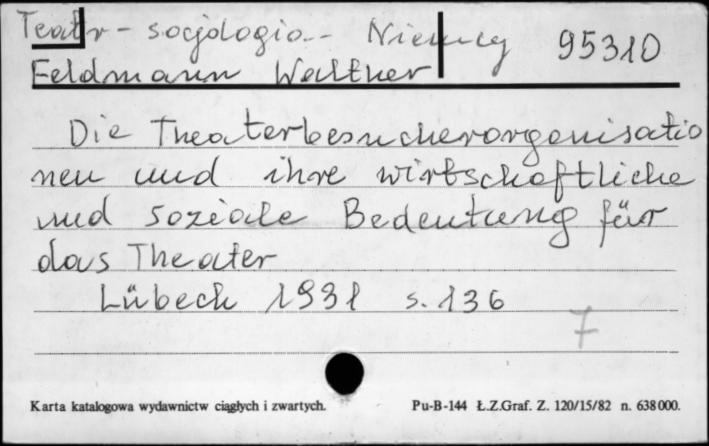 Teatr - socjologia - Niemcy 95310
Feldmann Walther
Die Theaterbesucherorganisatio
nen und ihre wirtschaftliche
und soziale Bedeutung für
das Theater
Lübeck 1931 s. 136
7
Karta katalogowa wydawnictw ciągłych i zwartych. Pu-B-144 Ł.Z.Graf. Z. 120/15/82 n. 638000.